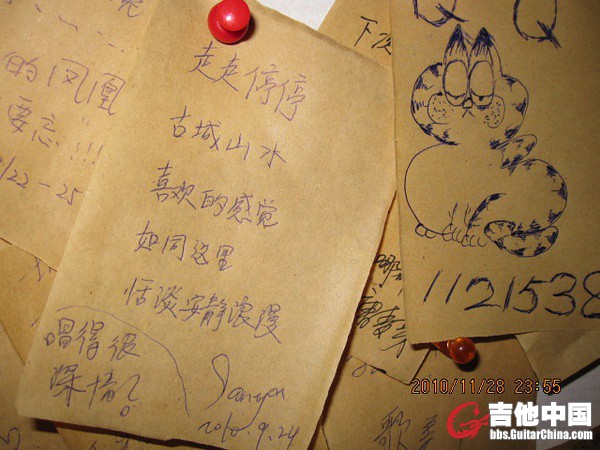 走走停停
古城山水
喜欢的感觉
如同这里
恬淡安静浪漫
唱得很
深情!
2010.9.24
的凤凰
要忘!!!
/22-25
下次
QQ
1121538
歌
2010/11/28 23:55
吉他中国
bbs.GuitarChina.com